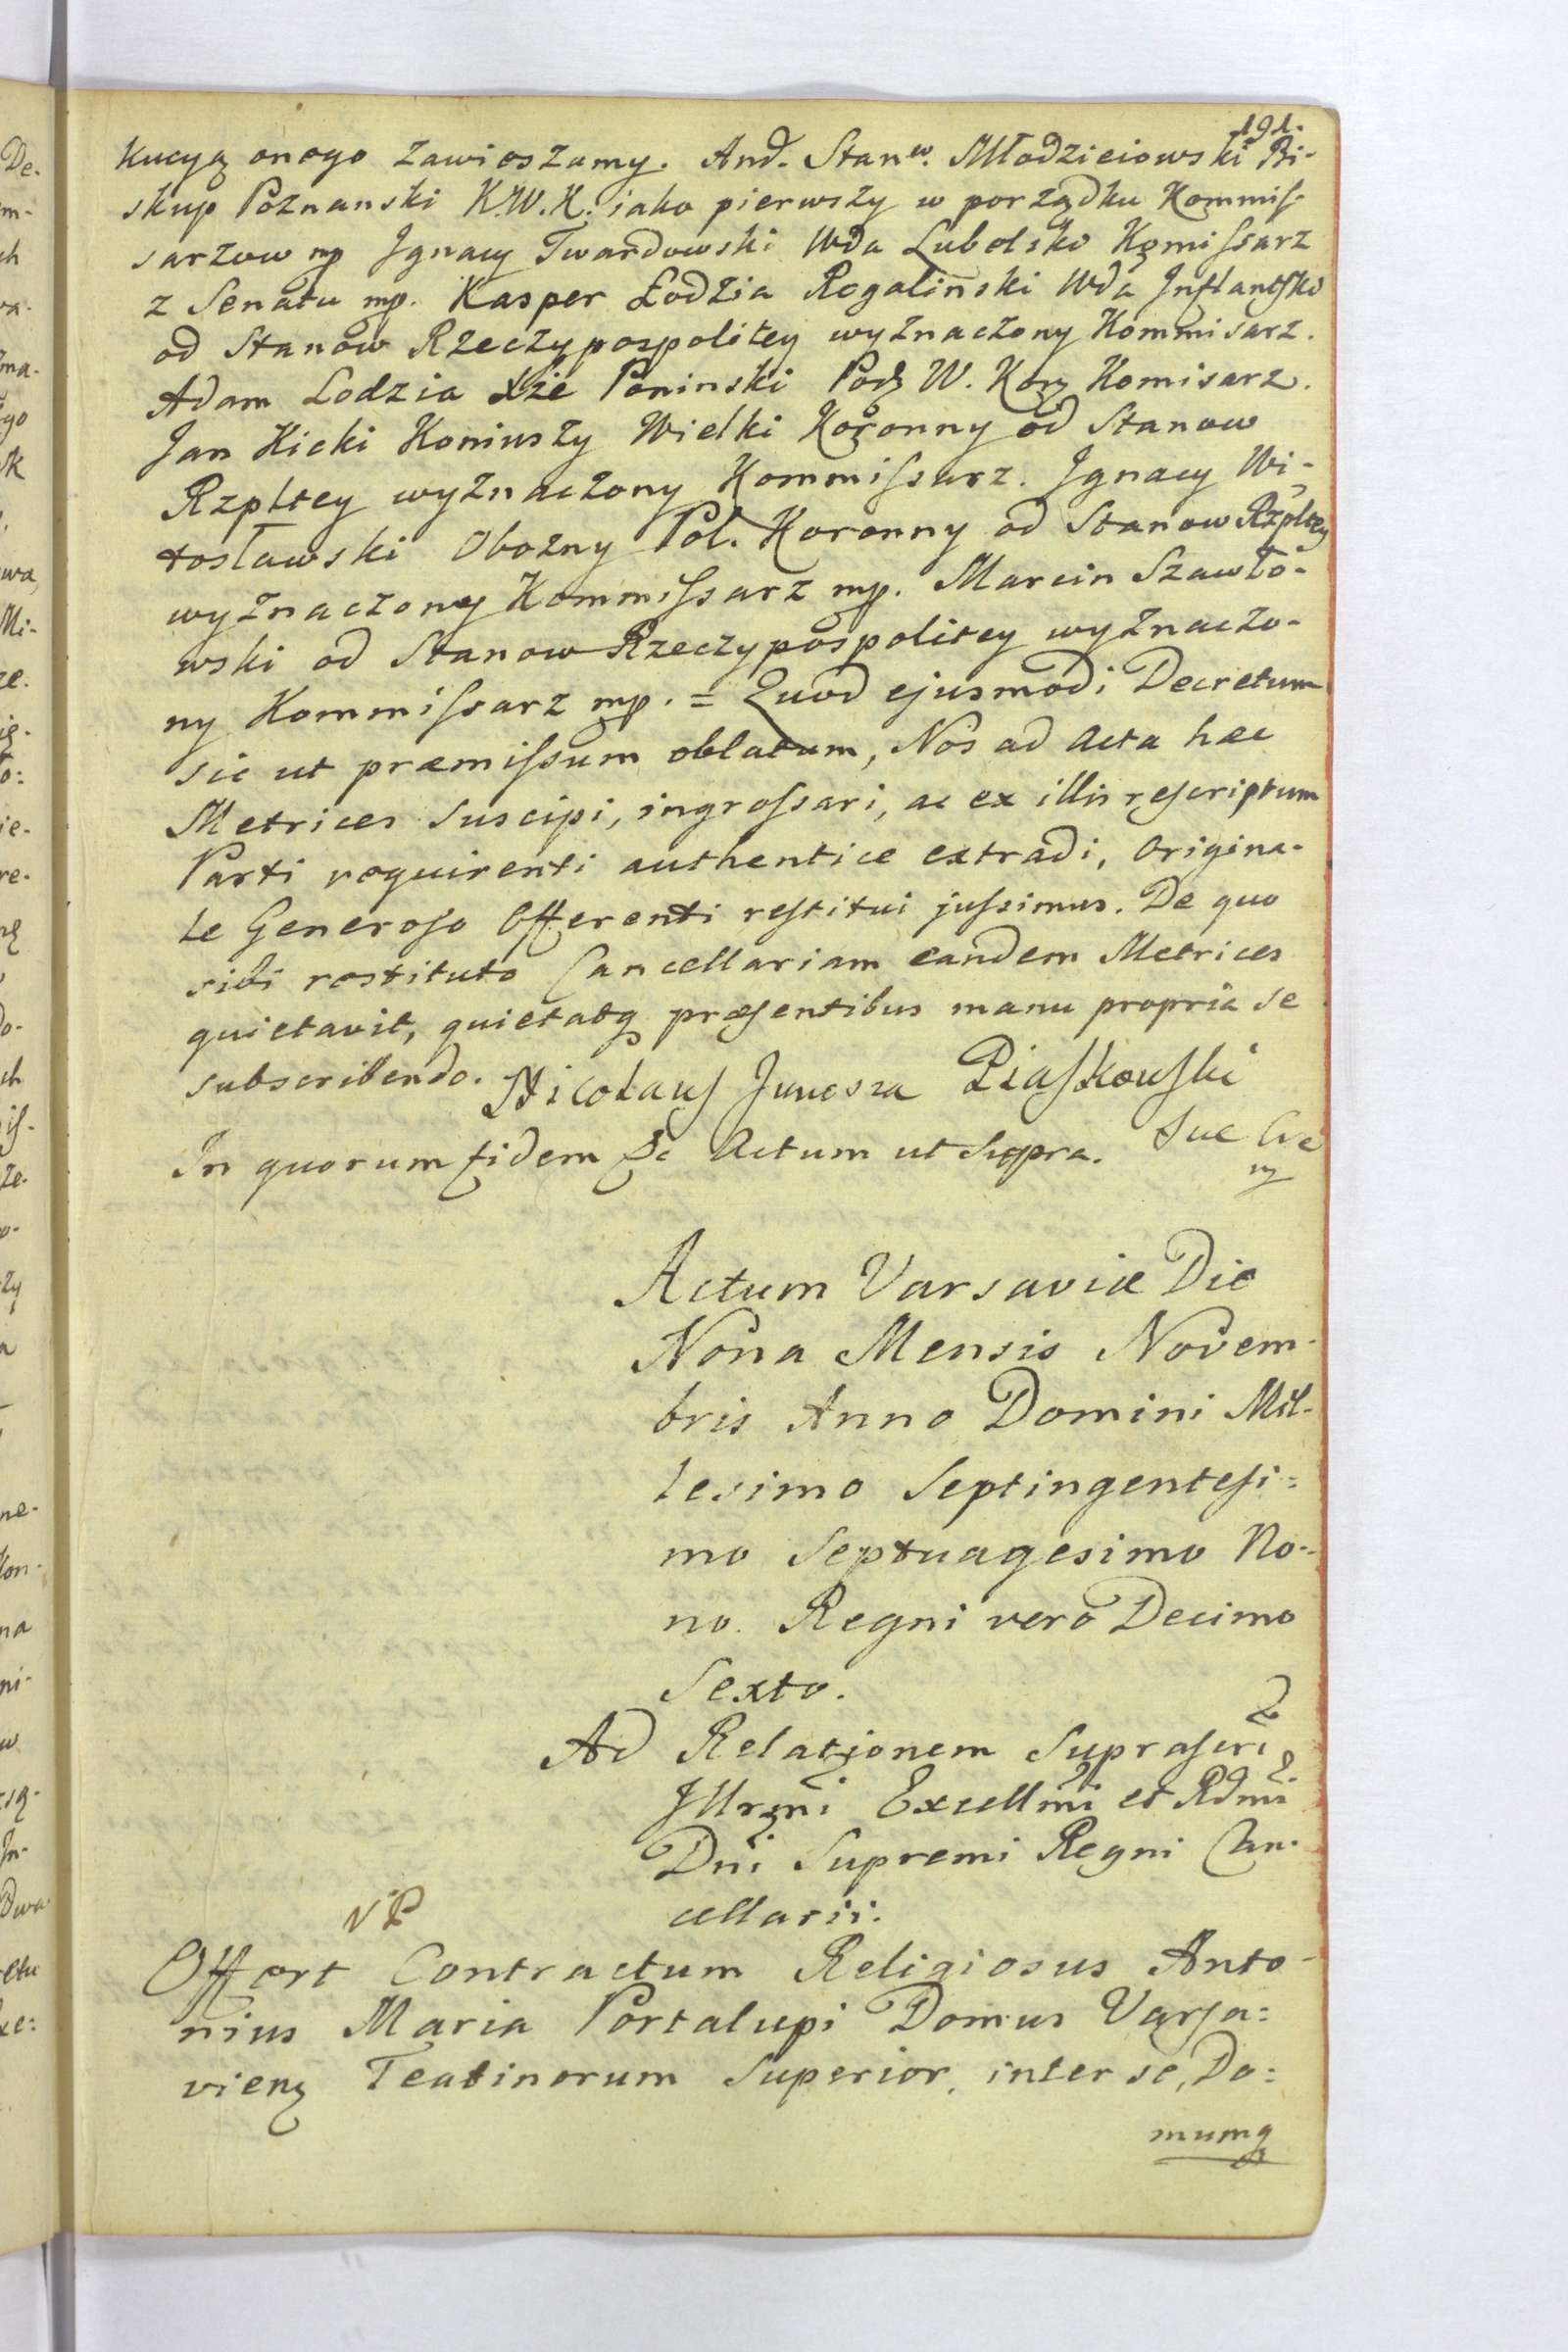 191.
kucyą onego zawieszamy. And. Stanw. Młodzieiowski Bi-
skup Poznanski K.W.K. iako pierwszy w porządku Kommiſ-
sarzow mp Jgnacy Twardowski Wda Lubelski Komiſsarz
z Senatu mp. Kasper Łodzia Rogaliński Wda Jnflantſki
od Stanow Rzeczypospolitey wyznaczony Kommisarz.
Adam Lodzia Xże Poninski Podz W. Korz Komisarz.
Jan Kicki Koniuszy Wielki Koronny od Stanow
Rzpltey wyznaczony Kommiſsarz. Jgnacy Wi-
tosławski Obozny Pol. Koronny od Stanow Rzpltey
wyznaczony Kommiſsarz mp. Marcin Szawło-
wski od Stanow Rzeczypospolitey wyznaczo-
ny Kommiſsarz mp. = Quod ejusmodi Decretum
sic ut præmiſsum oblatum, Nos ad Acta hæc
Metrices Suscipi, ingroſsari, ac ex illis reſcriptum
Parti requirenti authentice extradi, Origina-
le Generoſo Offerenti reſtitui juſsimus. De quo
sibi restituto Cancellariam eandem Metrices
quietavit, quietatq præſentibus manu propria se
subscribendo. Nicolauſ Junosza Piaſkowſki
In quorum fidem &c Actum ut Supra. Suc Cre
mp
Actum Varsaviæ Die
Nona Mensis Novem-
bris Anno Domini Mil-
lesimo Septingenteſi=
mo Septuagesimo No-
no. Regni vero Decimo
Sexto.
Ad Relationem Supraſcri
Jllrmi Excellmi et Rdmi
Dni Supremi Regni Can-
cellarii.
NP
Offert Contractum Religiosus Anto-
nius Maria Portalupi Domus Varſa=
vienz Teatinorum Superior, inter se, Do=
mumq